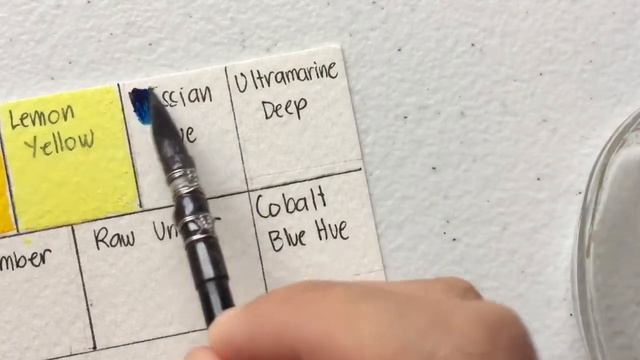 Lemon
Yellow
ssian
ue
Ultramarine
Deep
mber
Raw Um
Cobalt
Blue Hue